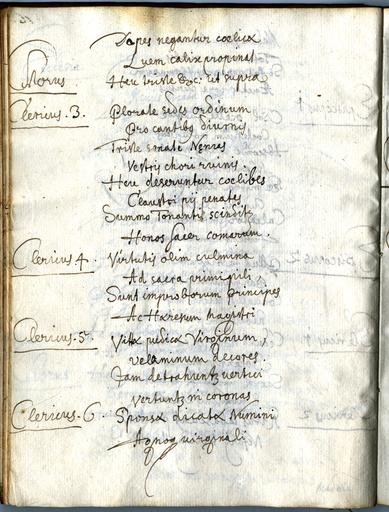 Dapes negantur cœlicæ
Quem calix propinat
Chorus Heu triste &c. ut supra
Clericus. 3. Plorate sedes ordinum
Pro cantibus diurnis
Triste sonate Neniæ
Vestri chori ruinis.
Heu deseruntur coelibes
Claustri pij penates
Summo Tonantis scinditr
Honos sacer comarum.
Clericus 4. Virtutis olim culmina
Ad sacra primipili,
Sunt improborum principes
Ac Hæresum magistri
Clericus. 5. Vittæ pudicæ Virginum,
velaminum decores.
Jam detrahuntr vertici
Vertuntr in coronas
Clericus. 6. Sponsæ dicatæ Numini
Agnoq virginali